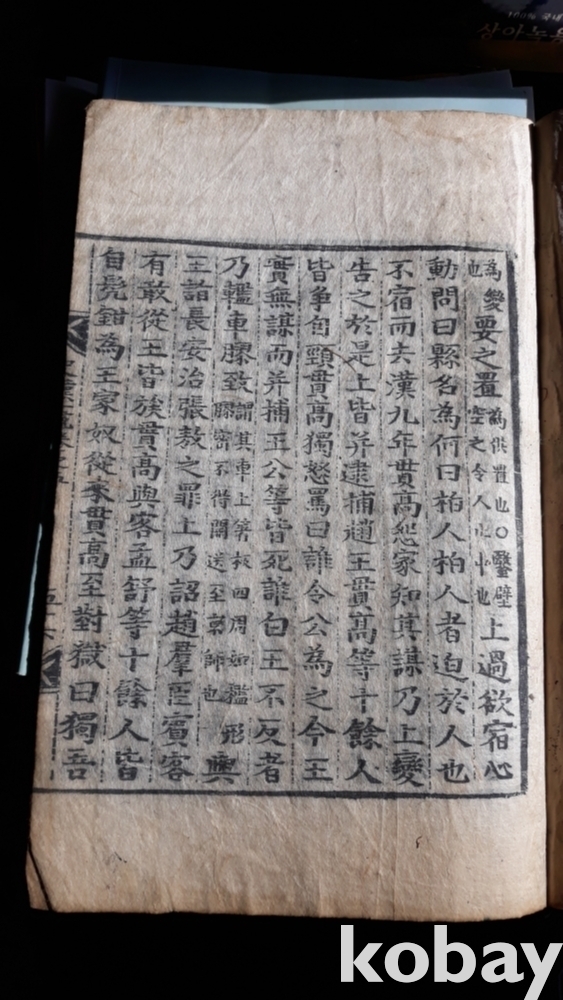 要之置為供置也○鑿壁空之令人止中也上過欲宿心
動問曰縣名為何曰柏人柏人者迫於人也
不宿而去漢九年貫高怨家知其謀乃上變
告之於是上皆并逮捕趙王貫高等十餘人
皆爭自頸貫高獨怒罵曰誰令公為之今王
實無謀而并捕王公等皆死誰白王不反者
乃轞車膠致謂其車上箸板四周如檻形膠密不得開送至京師也與
王詣長安治張敖之罪上乃詔趙羣臣賓客
有敢從王皆族貫高與客孟舒等十餘人皆
自髡鉗為王家奴從來貫高至對獄曰獨吾
kobay